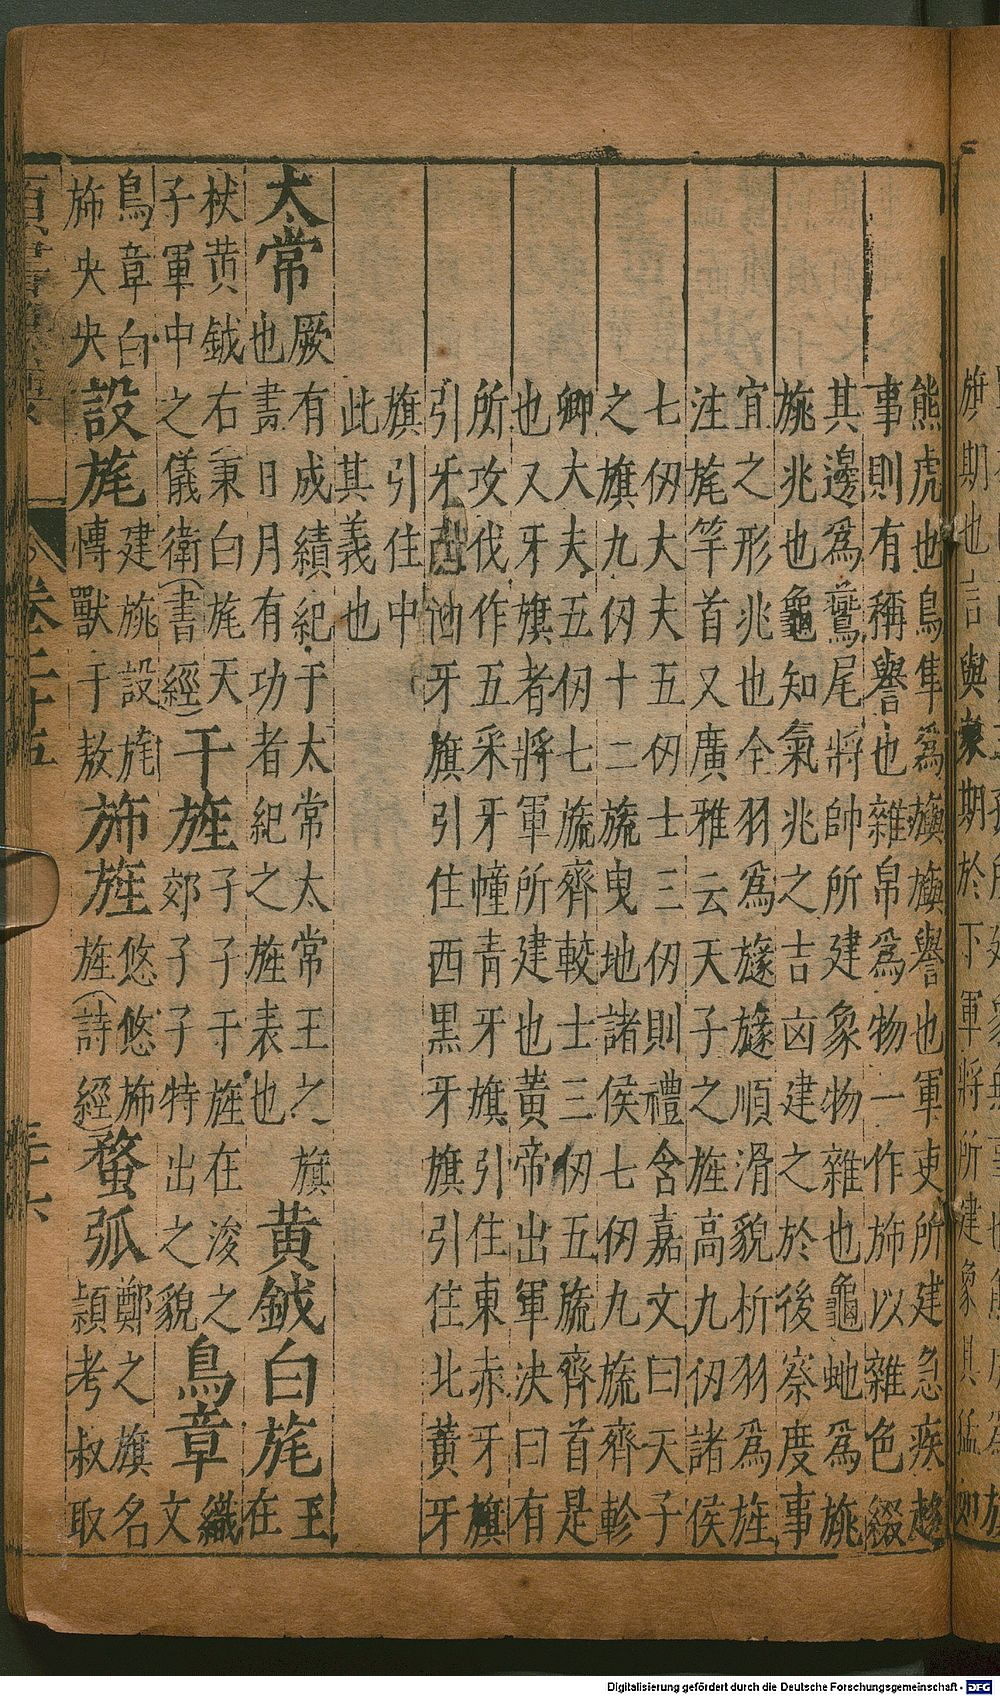 熊虎也鳥隼爲旟旟譽也軍吏所建急疾趨
事則有稱譽也雜帛爲物一作斾以雜色綴
其邊爲鷰尾將帥所建象物雜也龜虵爲旐
旐兆也龜知氣兆之吉凶建之於後察度事
宜之形兆也全羽爲旞旞順滑貌析羽爲旌
注旄竿首又廣雅云天子之旌高九仞諸侯
七仞大夫五仞士三仞則禮含嘉文曰天子
之旗九仞十二旒曳地諸侯七仞九旒齊軫
卿大夫五仞七旒齊較士三仞五旒齊首是
也又牙旗者將軍所建也黃帝出軍決曰有
所攻伐作五采牙幢青牙旗引住東赤牙旗
引牙旗引住西黑牙旗引住北黃牙
旗引住中
此其義也
太常
厥有成績紀于太常太常王之旗
也書日月有功者紀之旌表也
黄鉞白旄
王在
杖黄鉞右秉白旄天子
子軍中之儀衛(書經)
干旌
孑孑干旌在浚之
郊孑孑特出之貌
鳥章
織文
鳥章白
斾央央
設旄
建旐設旄
慱獸于敖
斾旌
悠悠斾
旌(詩經)
蝥弧
鄭之旗名
頴考叔取
卷二十五
旗期也言與衆期於下軍將所建象其猛如
Digitalisierung gefördert durch die Deutsche Forschungsgemeinschaft - DFG